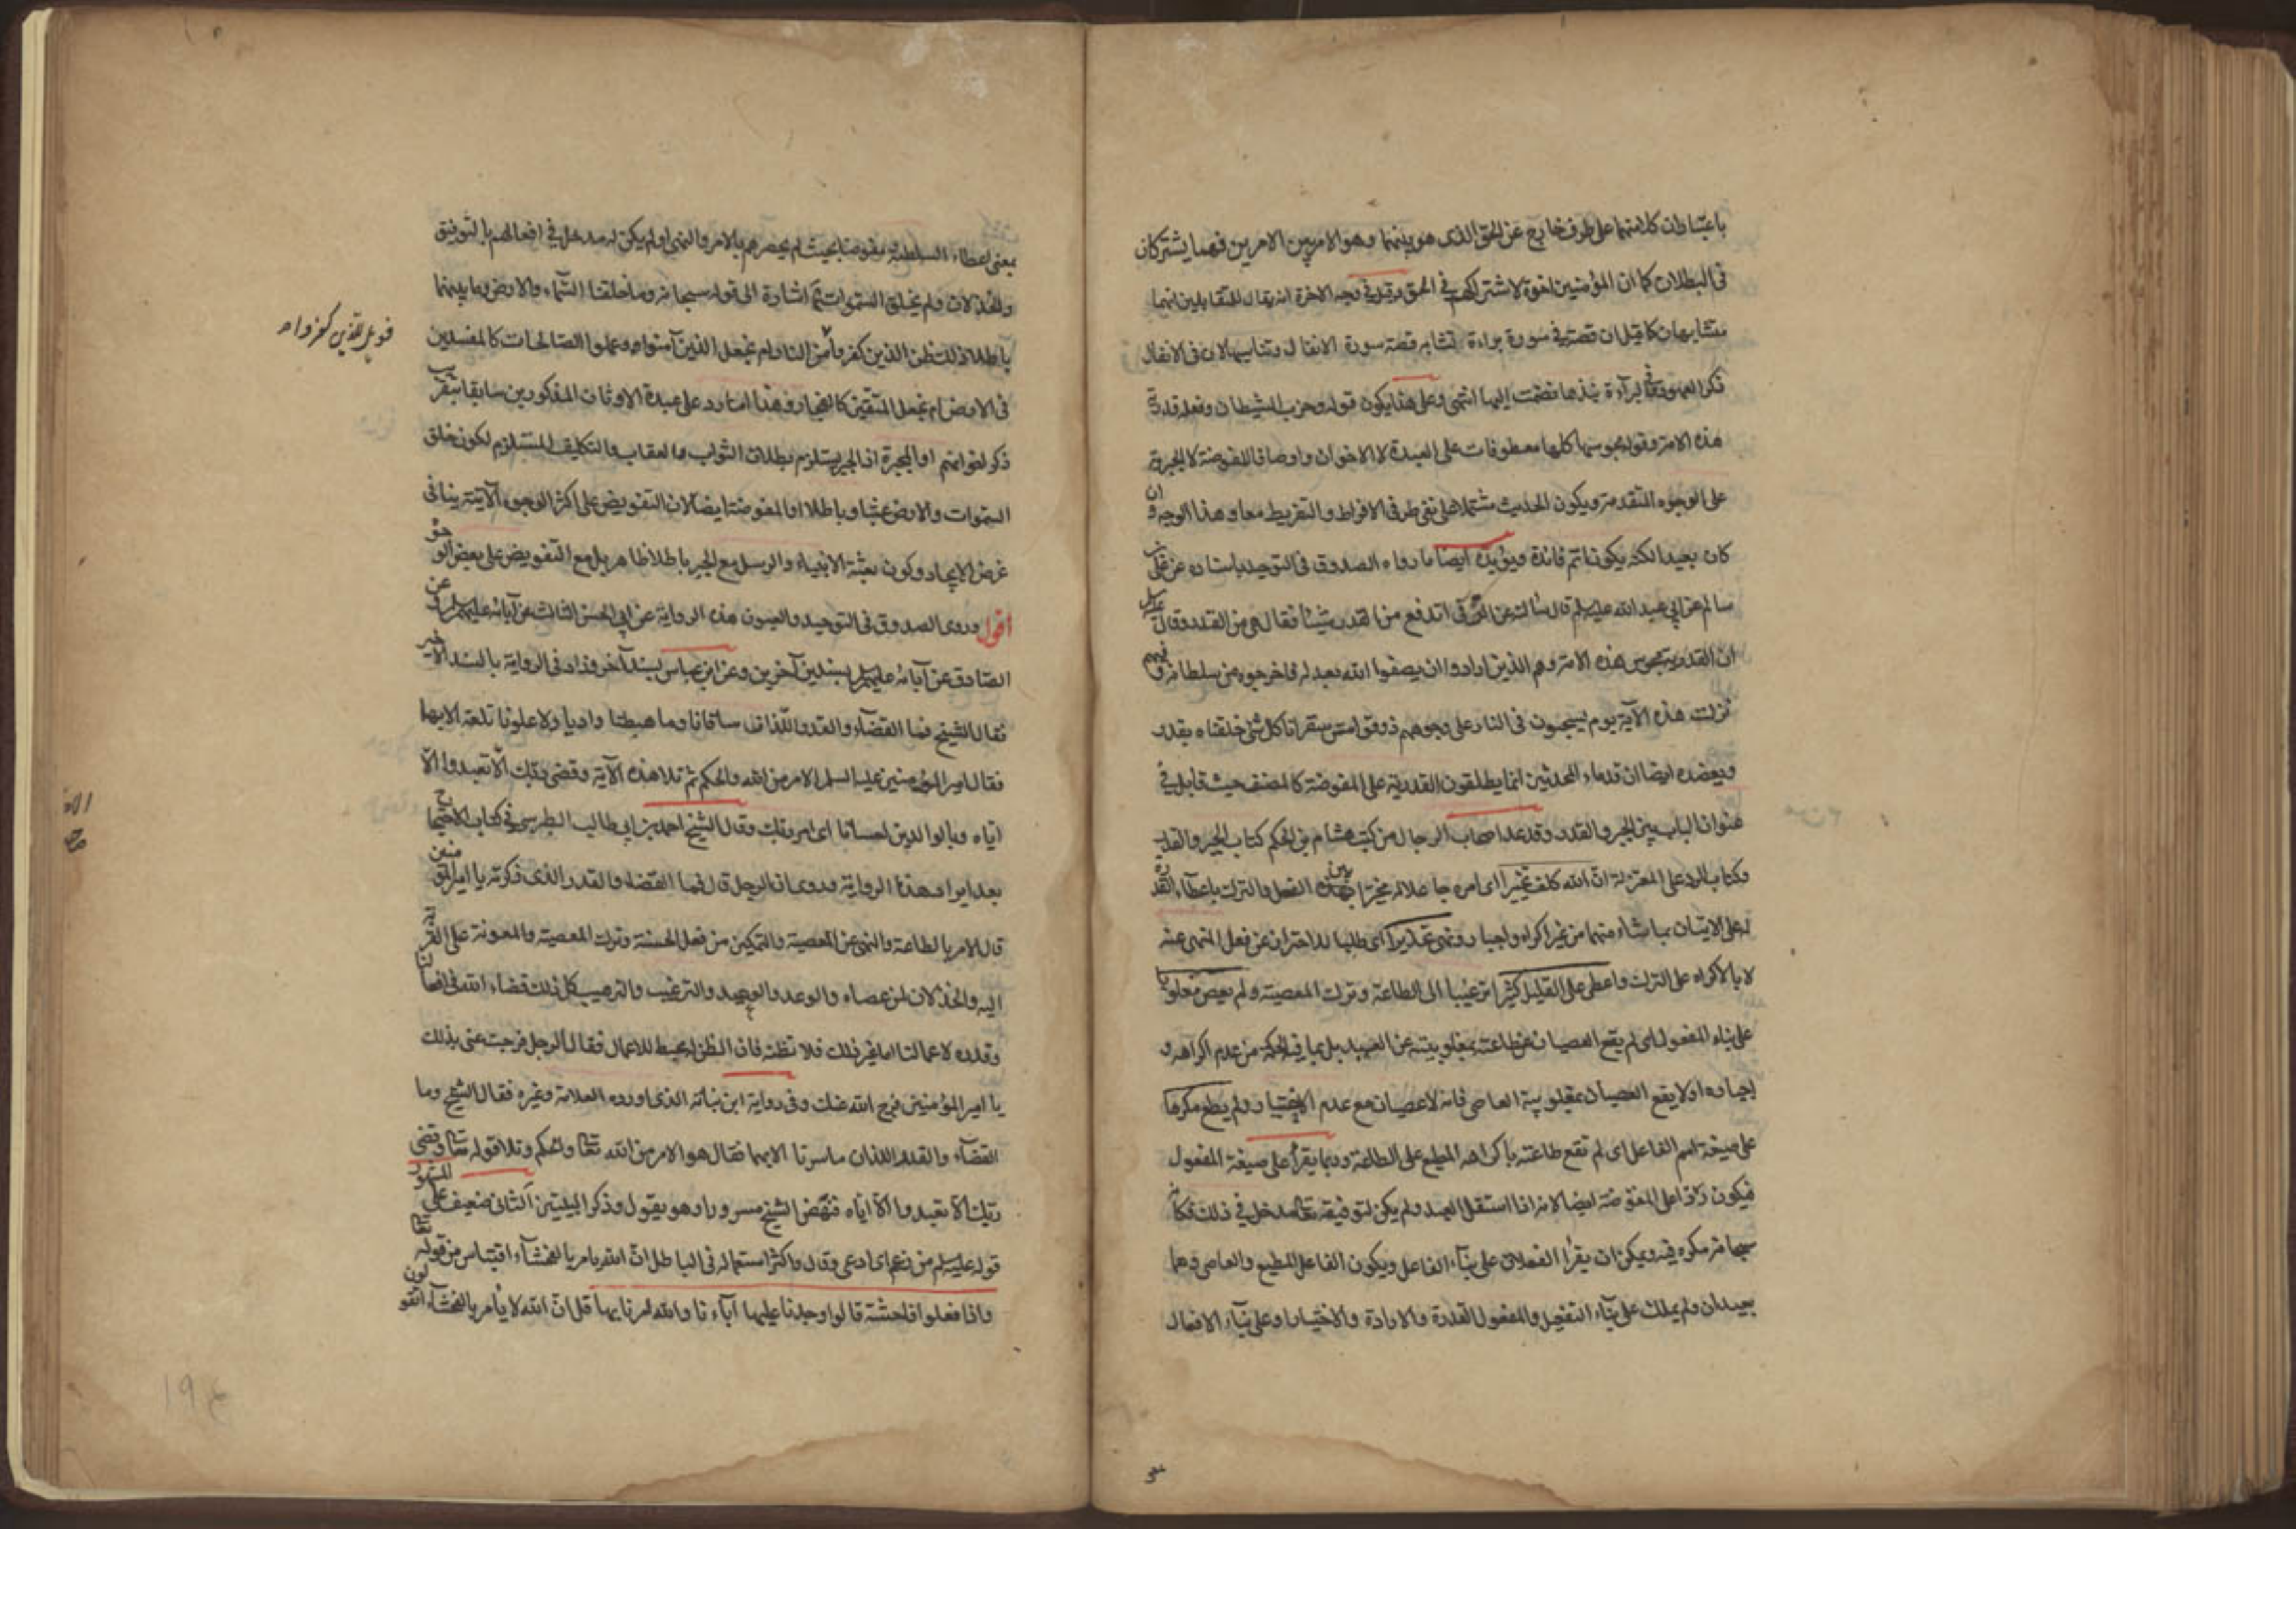 باعتبار ان كلا منهما على طرف خارج عن الحق الذى هو بينهما وهو الامر بين الامرين فهما يشتركان
فى البطلان كما ان المؤمنين اخوة لاشتراكهم فى الحق وقيل فى وجه الاخوة انه يقال للمتقابلين انهما
متشابهان كما قيل ان قصة فى سورة براءة تشابه قصة سورة الانفال وتناسبها لان فى الانفال
ذكر العهود وفى البراءة نبذها فضمت اليها انتهى وعلى هذا يكون قوله وحزب الشيطان وقوله قدرية
هذه الامة وقوله مجوسها كلها معطوفات على العبدة لا الاخوان واوصافا للمفوضة لا الجبرية
على الوجوه المتقدمة ويكون الحديث مشتملا على نفى طرفى الافراط والتفريط معا وهذا الوجه وان
كان بعيدا لكنه يكون اتم فائدة ويؤيده ايضا ما رواه الصدوق فى التوحيد باسناده عن على بن
سالم عن ابى عبد الله عليه السلم قال سالته عن الرقى اتدفع من القدر شيئا فقال هى من القدر وقال عليه السلم
ان القدرية مجوس هذه الامة وهم الذين ارادوا ان يصفوا الله بعدله فاخرجوه من سلطانه وفيهم
نزلت هذه الآية يوم يسحبون فى النار على وجوههم ذوقوا مس سقر انا كل شئ خلقناه بقدر
ويعضده ايضا ان قدماء المحدثين انما يطلقون القدرية على المفوضة كالمصنف حيث قابل فى
عنوان الباب بين الجبر والقدر وقد عد اصحاب الرجال من كتب هشام بن الحكم كتاب الجبر والقدر
وكتاب الرد على المعتزلة ان الله كلف تخييرا اى امره جاعلا له مخيرا بين الفعل والترك باعطاء القدرة
له على الاتيان بما شاء منهما من غير اكراه واجبار ونهى تحذيرا اى طلبا للاحتراز عن فعل المنهى عنه
لا بالاكراه على الترك واعطى على القليل كثيرا ترغيبا الى الطاعة وترك المعصية ولم يعص مغلوبا
على بناء المفعول اى لم يقع العصيان عن طاعته بمغلوبيته عن العبد بل بما فيه الحكمة من عدم اكراهه و
اجباره او لا يقع العصيان بمغلوبية العاصى فانه لا عصيان مع عدم الاختيار ولم يطع مكرها
على صيغة اسم الفاعل اى لم تقع طاعته باكراهه المطيع على الطاعة وربما يقرأ على صيغة المفعول
فيكون ردا على المفوضة ايضا لانه اذا استقل العبد ولم يكن لتوفيقه تعالى مدخل فى ذلك فكانه
سبحانه مكره فيه ويمكن ان يقرأ الفعلان على بناء الفاعل ويكون الفاعل المطيع والعاصى وهما
بعيدان ولم يملك على بناء التفعيل والمفعول القدرة والارادة والاختيار او على بناء الافعال
بمعنى اعطاء السلطنة مفوضا بحيث لم يحصرهم بالامر والنهى او لم يكن له مدخل فى افعالهم بالتوفيق
والخذلان ولم يخلق السموات ثم اشارة الى قوله سبحانه وما خلقنا السماء والارض وما بينهما
باطلا ذلك ظن الذين كفروا من النار ام نجعل الذين آمنوا وعملوا الصالحات كالمفسدين
فويل للذين كفروا
فى الارض ام نجعل المتقين كالفجار وهذا اما رد على عبدة الاوثان المذكورين سابقا بتقريب
ذكر اخوانهم او المجبرة اذ الجبر يستلزم بطلان الثواب والعقاب والتكليف المستلزم لكون خلق
السموات والارض عبثا وباطلا او المفوضة ايضا لان التفويض على اكثر الوجوه الآتية ينافى
غرض الايجاد وكون بعثة الانبياء والرسل مع الجبر باطلا ظاهر بل مع التفويض على بعض الوجوه
اقول وروى الصدوق فى التوحيد والعيون هذه الرواية عن ابى الحسن الثالث عن آبائه عليهم السلم وعن
الصادق عن آبائه عليهم السلم بسندين آخرين وعن ابن عباس بسند آخر وزاد فى الرواية بالسند الاخير
فقال الشيخ فما القضاء والقدر اللذان ساقانا وما هبطنا واديا ولا علونا تلعة الا بهما
فقال امير المؤمنين عليه السلم الامر من الله والحكم ثم تلا هذه الآية وقضى ربك الا تعبدوا الا
اياه وبالوالدين احسانا اى امر ربك وقال الشيخ احمد بن ابى طالب الطبرسى فى كتاب الاحتجاج
بعد ايراد هذه الرواية وروى ان الرجل قال فما القضاء والقدر الذى ذكرته يا امير المؤمنين
قال الامر بالطاعة والنهى عن المعصية والتمكين من فعل الحسنة وترك المعصية والمعونة على القربة
اليه والخذلان لمن عصاه والوعد والوعيد والترغيب والترهيب كل ذلك قضاء الله فى افعالنا
وقدره لاعمالنا اما غير ذلك فلا تظنه فان الظن له محبط للاعمال فقال الرجل فرجت عنى بذلك
يا امير المؤمنين فرج الله عنك وفى رواية ابن نباتة الذى اورده العلامة وغيره فقال الشيخ وما
القضاء والقدر اللذان ما سرنا الا بهما فقال هو الامر من الله تعالى والحكم وتلا قوله تعالى وقضى
ربك الا تعبدوا الا اياه فنهض الشيخ مسرورا وهو يقول وذكر البيتين الثانى ضعيف على المشهور
قوله عليه السلم من زعم اى ادعى وقال واكثر استعماله فى الباطل ان الله يامر بالفحشاء اقتباس من قوله تعالى
واذا فعلوا فاحشة قالوا وجدنا عليها آباءنا والله امرنا بها قل ان الله لا يأمر بالفحشاء اتقولون